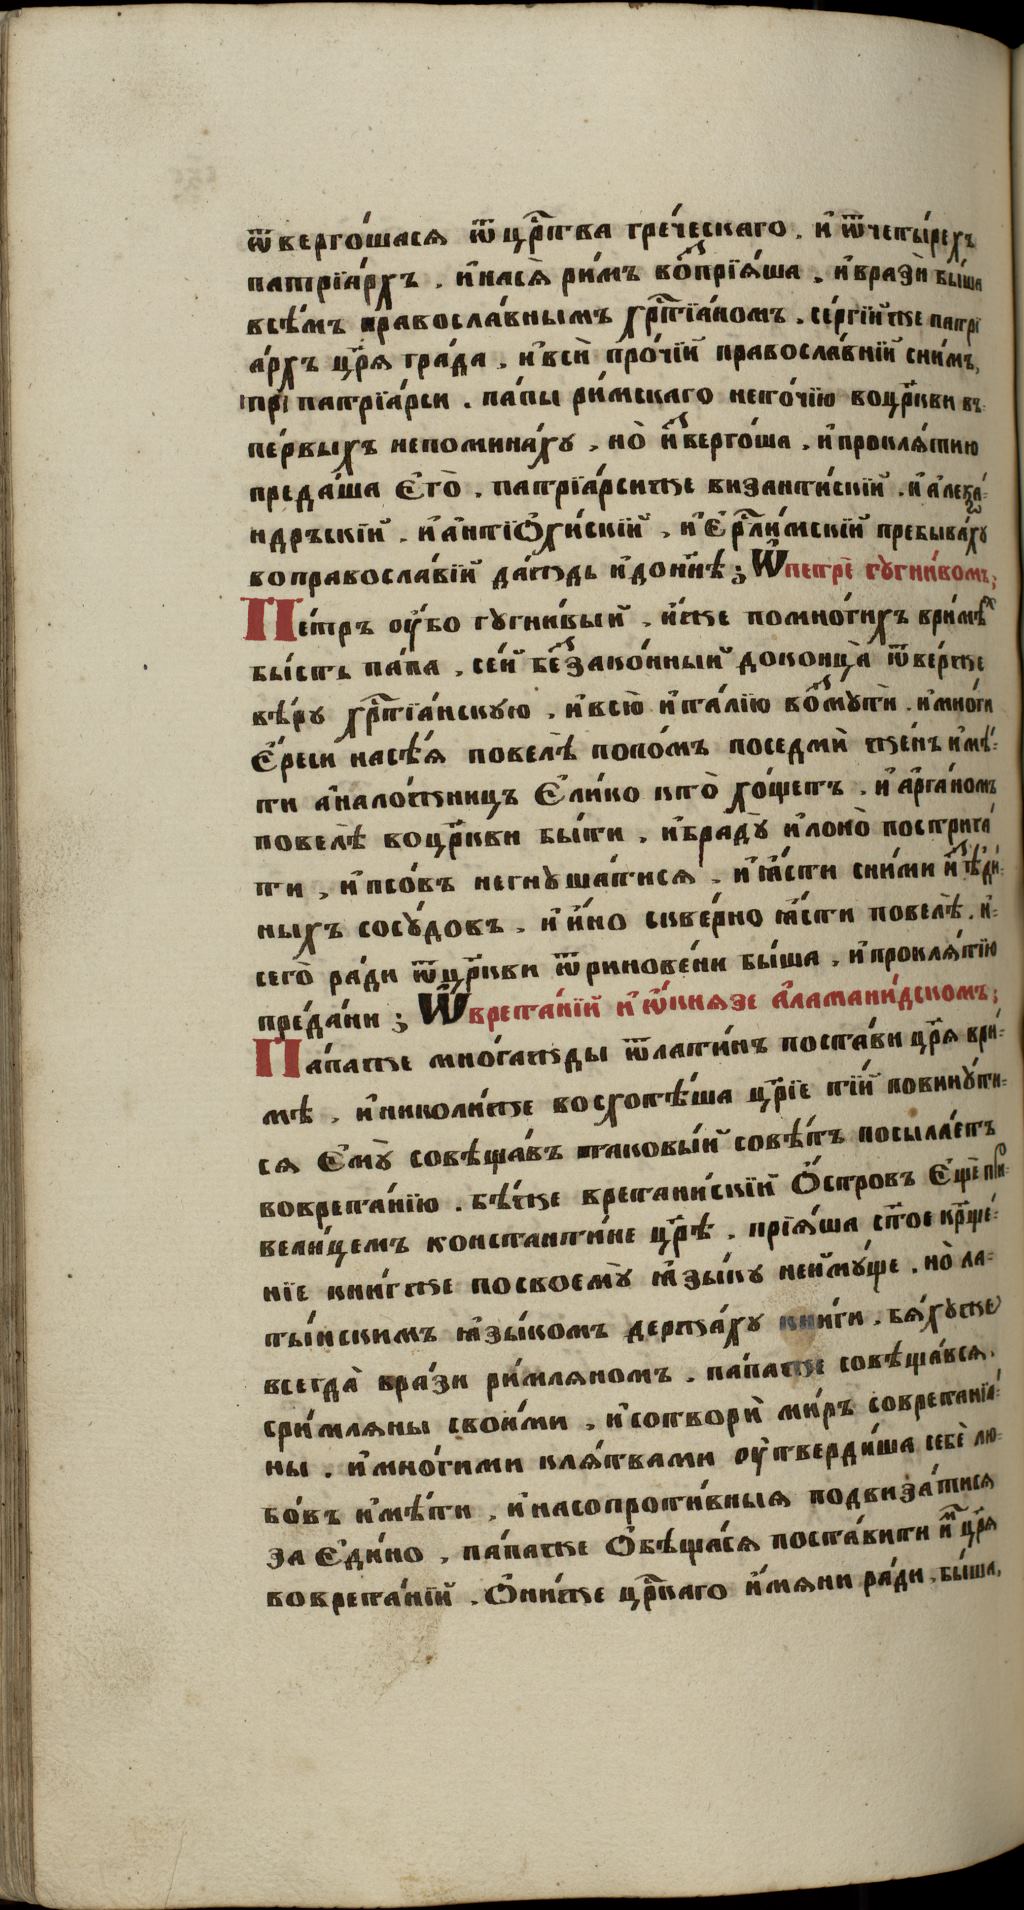 ѿверго́шася ѿ црⷭ҇тва гре́ческаго. и҆ ѿ четы́рехъ
патрїа́рхъ. и҆ нася̀ ри́мъ воⷥ҇прїя́ша. и҆ врази̇̀ бы́ша
всѣ́мъ правосла́внымъ хрⷭ҇тїа́номъ. се́ргїи́ же патрї
а́рхъ цр҃я гра́да. и҆ всѝ про́чїй правосла́внїй сни́мъ,
при патрїа́рси. па́пы ри́мскаго не то́чїю во цр҃кви въ
пе́рвыхъ не помина́ху, но̀ и҆ⷥ҇верго́ша. и҆ прокля́тию
преда́ша Є҆го̀. патрїа́рси же византи́скїй. и҆ а҆леѯа́-
ндръскїй. и҆ а҆нтїѻ҆хи́искїй, и҆ Є҆рⷭ҇ли́мскїй пребыва́ху
во правосла́вїй да́ждь и҆ дони́нѣ; Ѽ петрѐ гугни́вомъ;
Пе́тръ оу҆́бо гугни́вый, и҆́же по мно́гихъ в ри́мѣⷯ
бы́сть па́па. се́й беⷥ҇зако́нный до конца̀ ѿве́рже
вѣ́ру хрⷭ҇тїа́нскую, и҆ всю̀ и҆та́лїю воⷥ҇мутѝ. и҆ мно́ги
Є҆́реси насѣ́я повелѣ̀ попо́мъ по седмѝ же́нъ и҆мѣ́-
ти а҆ нало́жницъ Є҆ли́ко кто̀ хо́щетъ. и҆ а҆рга́номъ
повелѣ̀ во цр҃кви бы́ти, и҆ браду̀ и҆ лоно̀ пострига́
ти, и҆ псо́въ не гнуша́тися. и҆ ꙗ҆́сти с ни́ми и҆ⷥ҇ є҆ди́-
ныхъ сосу́довъ, и҆ и҆́но скве́рно ꙗ҆́сти повелѣ̀. и҆-
сего̀ ра́ди ѿ цр҃кви ѿринове́ни бы́ша, и҆ прокля́тїю
пре́да́ни; Ѽ врета́нїй и҆ ѽ кня́зе а҆ламани́дскомъ;
Па́па же мно́гажды ѿ лати́нъ поста́ви цр҃я в ри́-
мѣ. и҆ николи́же восхотѣ́ша црⷭ҇їе тїй повину́ти-
ся Є҆му̀ совѣща́въ таковы́й совѣ́тъ посыла́етъ
во врета́нїю. бѣ́ же врета́нискїй Ѻ҆́стровъ Є҆щѐ прⷤи
вели́цемъ константи́не цр҃ѣ. прїя́ша ст҃ое кр҃ще́-
нїе кни́г же по своему̀ ꙗ҆зы́ку не и҆му́ще. но̀ ла-
ты́нскимъ ꙗ҆зы́комъ держа́ху кни́ги. бя́ху же
всегда̀ врази̇ ри́мляномъ. па́па же совѣща́вся.
с ри́мляны свои́ми, и҆ сотворѝ ми́ръ со врета́нїа-
ны. и҆ мно́гими кля́твами оу҆тверди́ша себѐ лю-
бо́въ и҆мѣ́ти, и҆ на сопроти́вныя подвиза́тися
за Є҆ди́но, па́па же Ѻ҆бѣща́ся поста́вити и҆м̾ цр҃я
во врета́нїй. Ѻ҆ни́ же црⷭ҇каго и҆́мяни ра́ди, бы́ша,